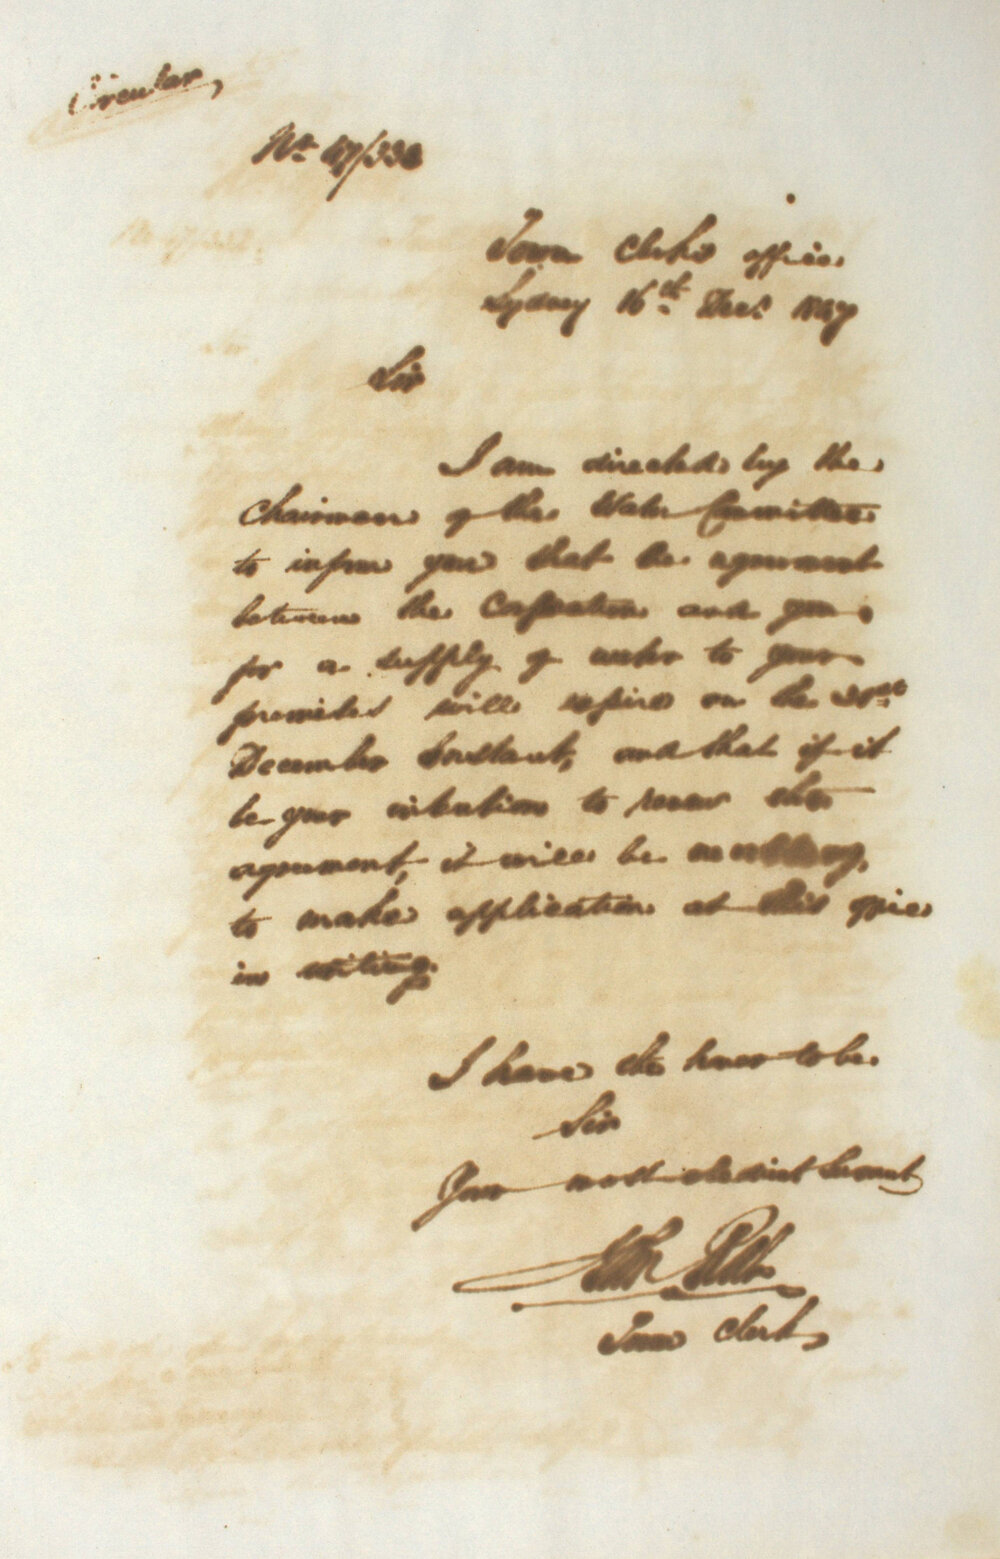 Circular,
No. 47/338
Town Clerks office
Sydney 16th Decr. 1847
Sir
I am directed by the
Chairman of the Water Committee
to inform you that the agreement
between the Corporation and you
for a supply of water to your
premises will expire on the 31st
December Instant, and that if it
be your intention to renew the
agreement, it will be necessary,
to make application at this office
in writing.
I have the honor to be
Sir
Your most obedient Servant
Town Clerk